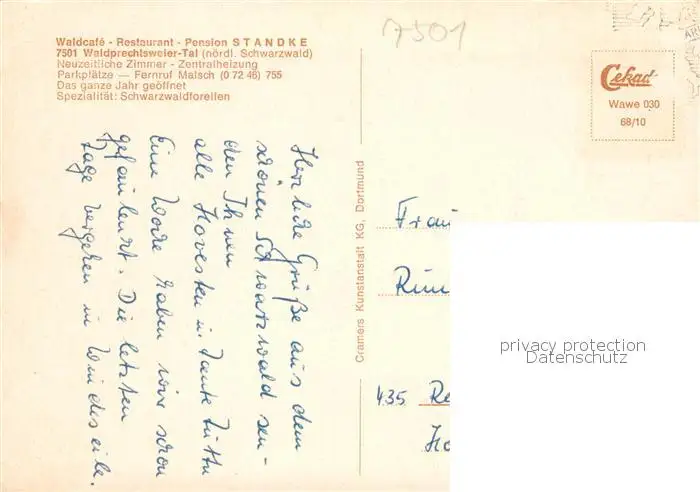 Waldcafé - Restaurant - Pension STANDKE
7501 Waldprechtsweier-Tal (nördl. Schwarzwald)
Neuzeitliche Zimmer - Zentralheizung
Parkplätze — Fernruf Malsch (0 72 46) 755
Das ganze Jahr geöffnet
Spezialität: Schwarzwaldforellen
7501
Cekade
Wawe 030
68/10
Herzliche Grüße aus dem
schönen Schwarzwald sen-
den Ihnen
alle Hovesten u. Tante
Eine Woche haben wir schon
gefaulenzt. Die letzten
Tage vergehen in Windeseile.
Cramers Kunstanstalt KG, Dortmund
Frau
435 Re
privacy protection
Datenschutz